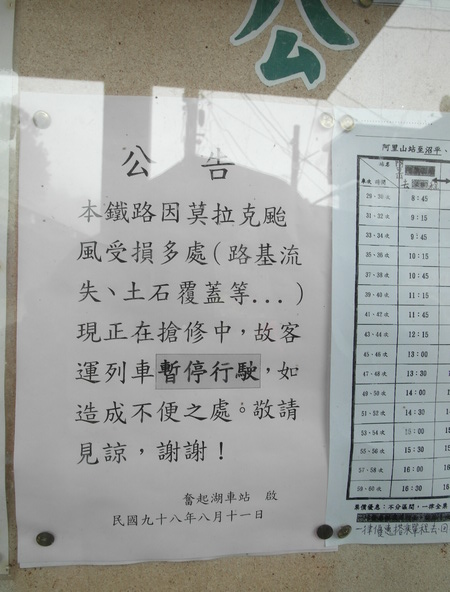 公
公告
本鐵路因莫拉克颱
風受損多處(路基流
失、土石覆蓋等...)
現正在搶修中,故客
運列車暫停行駛,如
造成不便之處。敬請
見諒,謝謝!
奮起湖車站 啟
民國九十八年八月十一日
阿里山站至沼平、
車次 時間
29、30 次 8:45
31、32 次 9:15
33、34 次 9:45
35、36 次 10:15
37、38 次 10:45
39、40 次 11:15
41、42 次 11:45
43、44 次 12:15
45、46 次 13:00
47、48 次 13:30
49、50 次 14:00
51、52 次 14:30
53、54 次 15:00
55、56 次 15:30
57、58 次 16:00
59、60 次 16:30
票價優惠:不分區間,一律全票